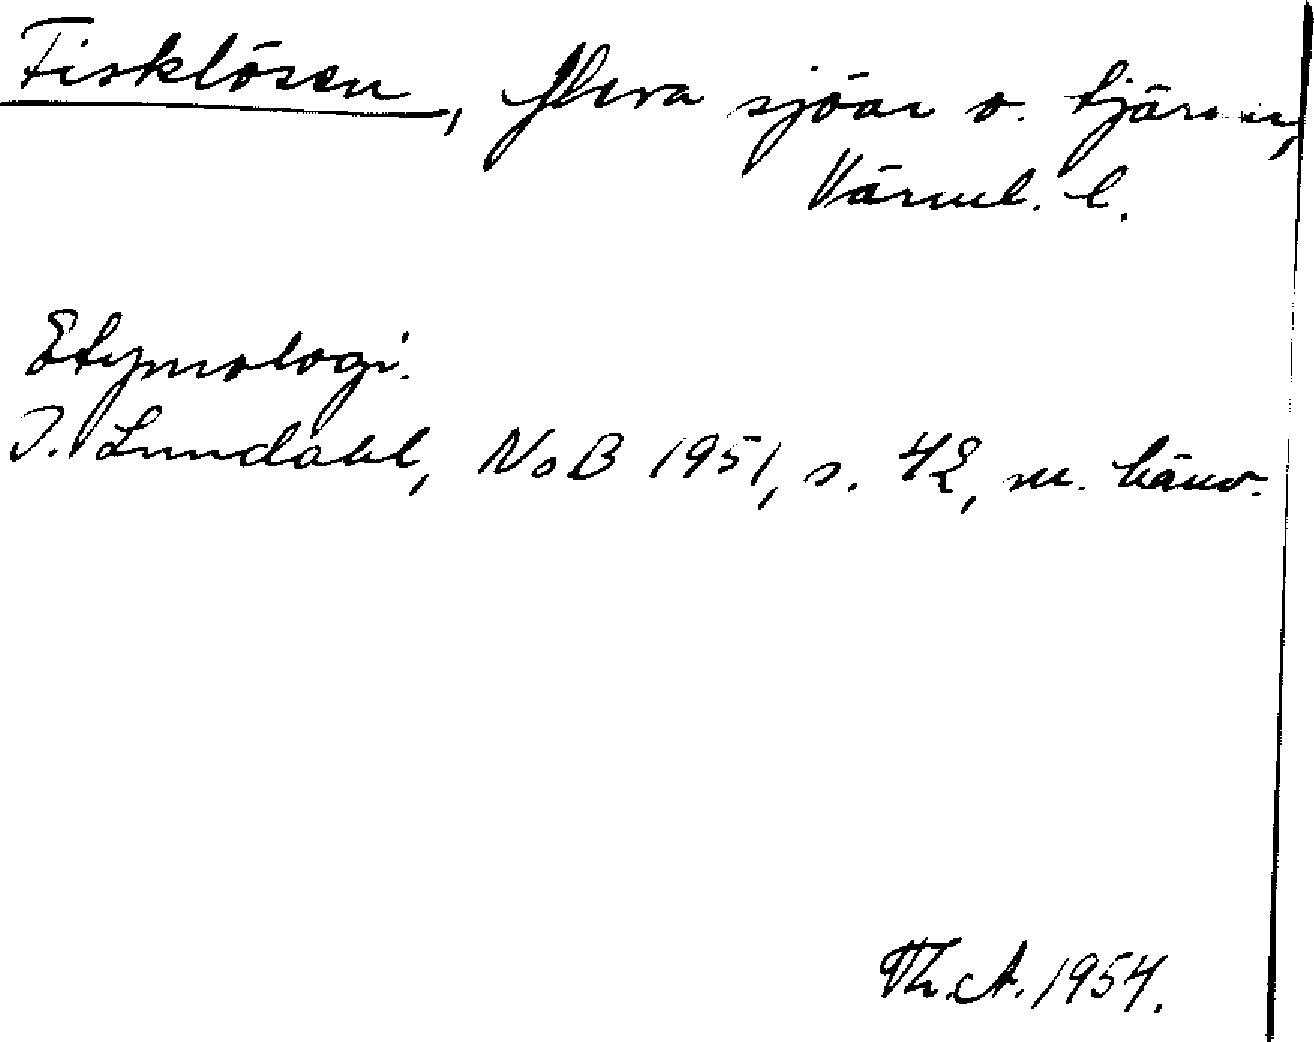 Fisklösen, flera sjöar o. tjärnar,
Värml. l.
Etymologi.
I. Lundahl, NoB 1951, s. 42, m. hänv.
Th. A. 1954.